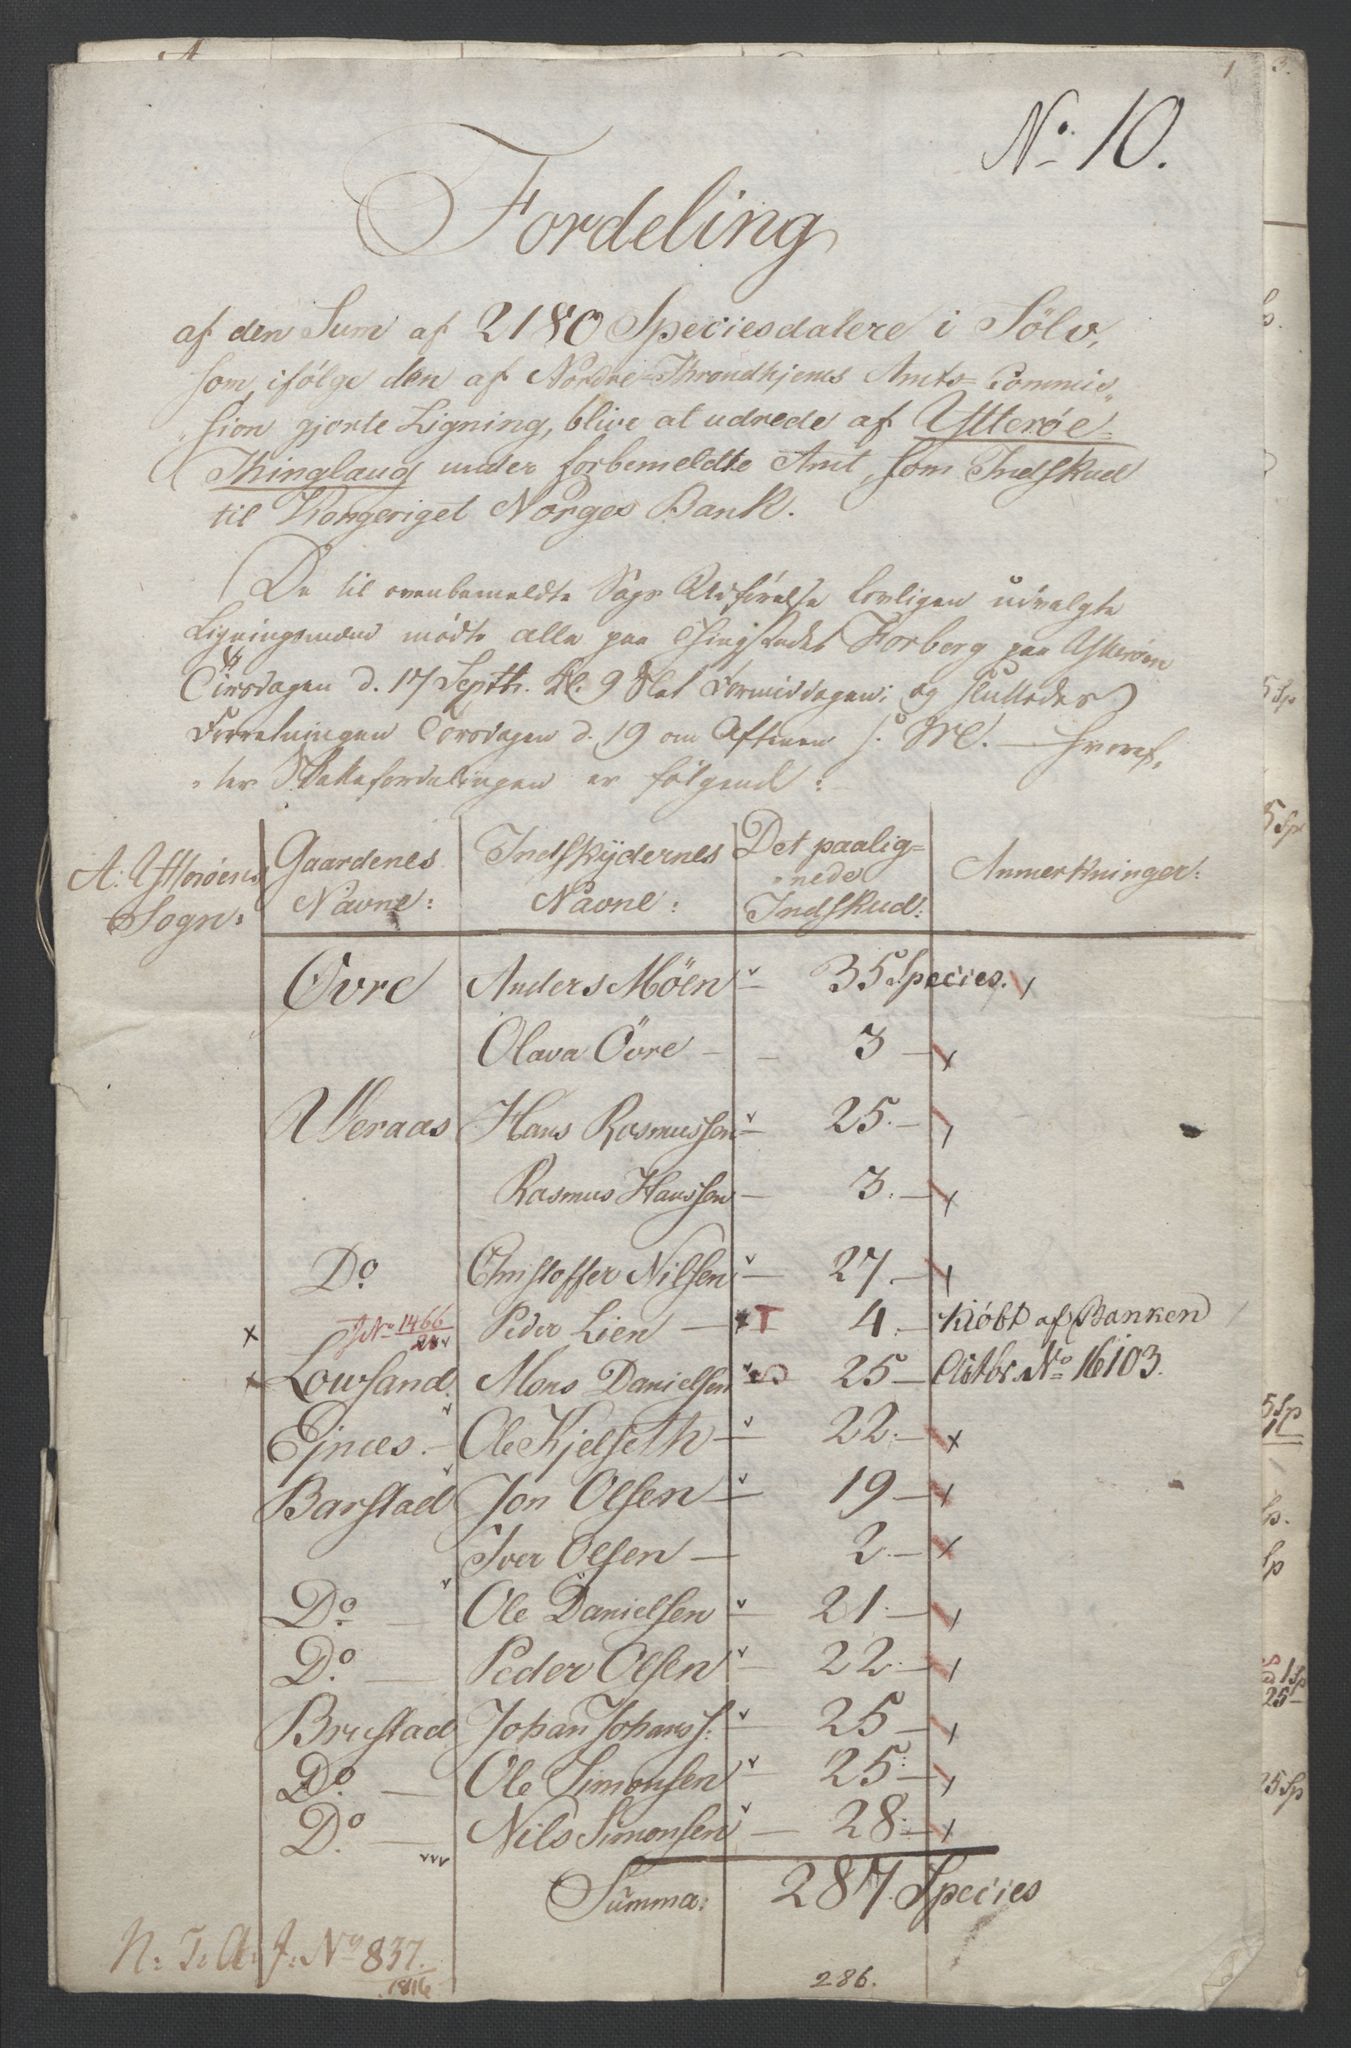 1
No 10.
Fordeling
af den Sum af 2180 Speciesdalere i Sölv,
som, ifölge den af Nordre-Throndhjems Amts-Commis-
sion gjorte Ligning, blive at udrede af Ytterøe
Thinglaug under forbemeldte Amt, som Indskud
til Kongeriget Norges Bank.
De til ovenbemeldte Sags Udförelse lovligen udvalgte
Ligningsmænd mödte alle paa Thingstedet Forberg paa Ytterøen
Tirsdagen d. 17 Septbr. Kl. 9 Slet Formiddagen; og sluttedes
Forretningen Torsdagen d. 19 om Aftenen s. M. — hvoref-
ter Skattefordelingen er fölgende:
A: Ytterøens Sogn:
Gaardenes Navne: Indskydernes Navne: Det paalig-nede Indskud: Anmerkninger:
Øvre Anders Möen 35 Species.
Olava Övre 3
Weraas Hans Rasmussen 25
Rasmus Hanssen 3
Do Christoffer Nilsen 27
J No 1466 Peder Lien 4 Kiöbt af Banken
Lowsand Mons Danielsen 25 No 16103.
Ejnæs Ole Kjelseth 22
Barstad Jon Olsen 19
Iver Olsen 2
Do Ole Danielsen 21
Do Peder Olsen 22
Brustad Johan Johans: 25
Do Ole Simonsen 25
Do Nils Simonsen 28
Summa: 287 Species
N: T: A: J: No 837.
1816
286.